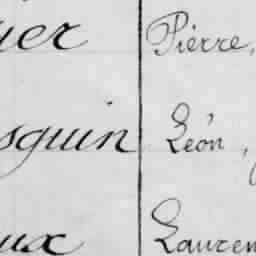 ier Pierre,
sguin Léon,
ux Lauren